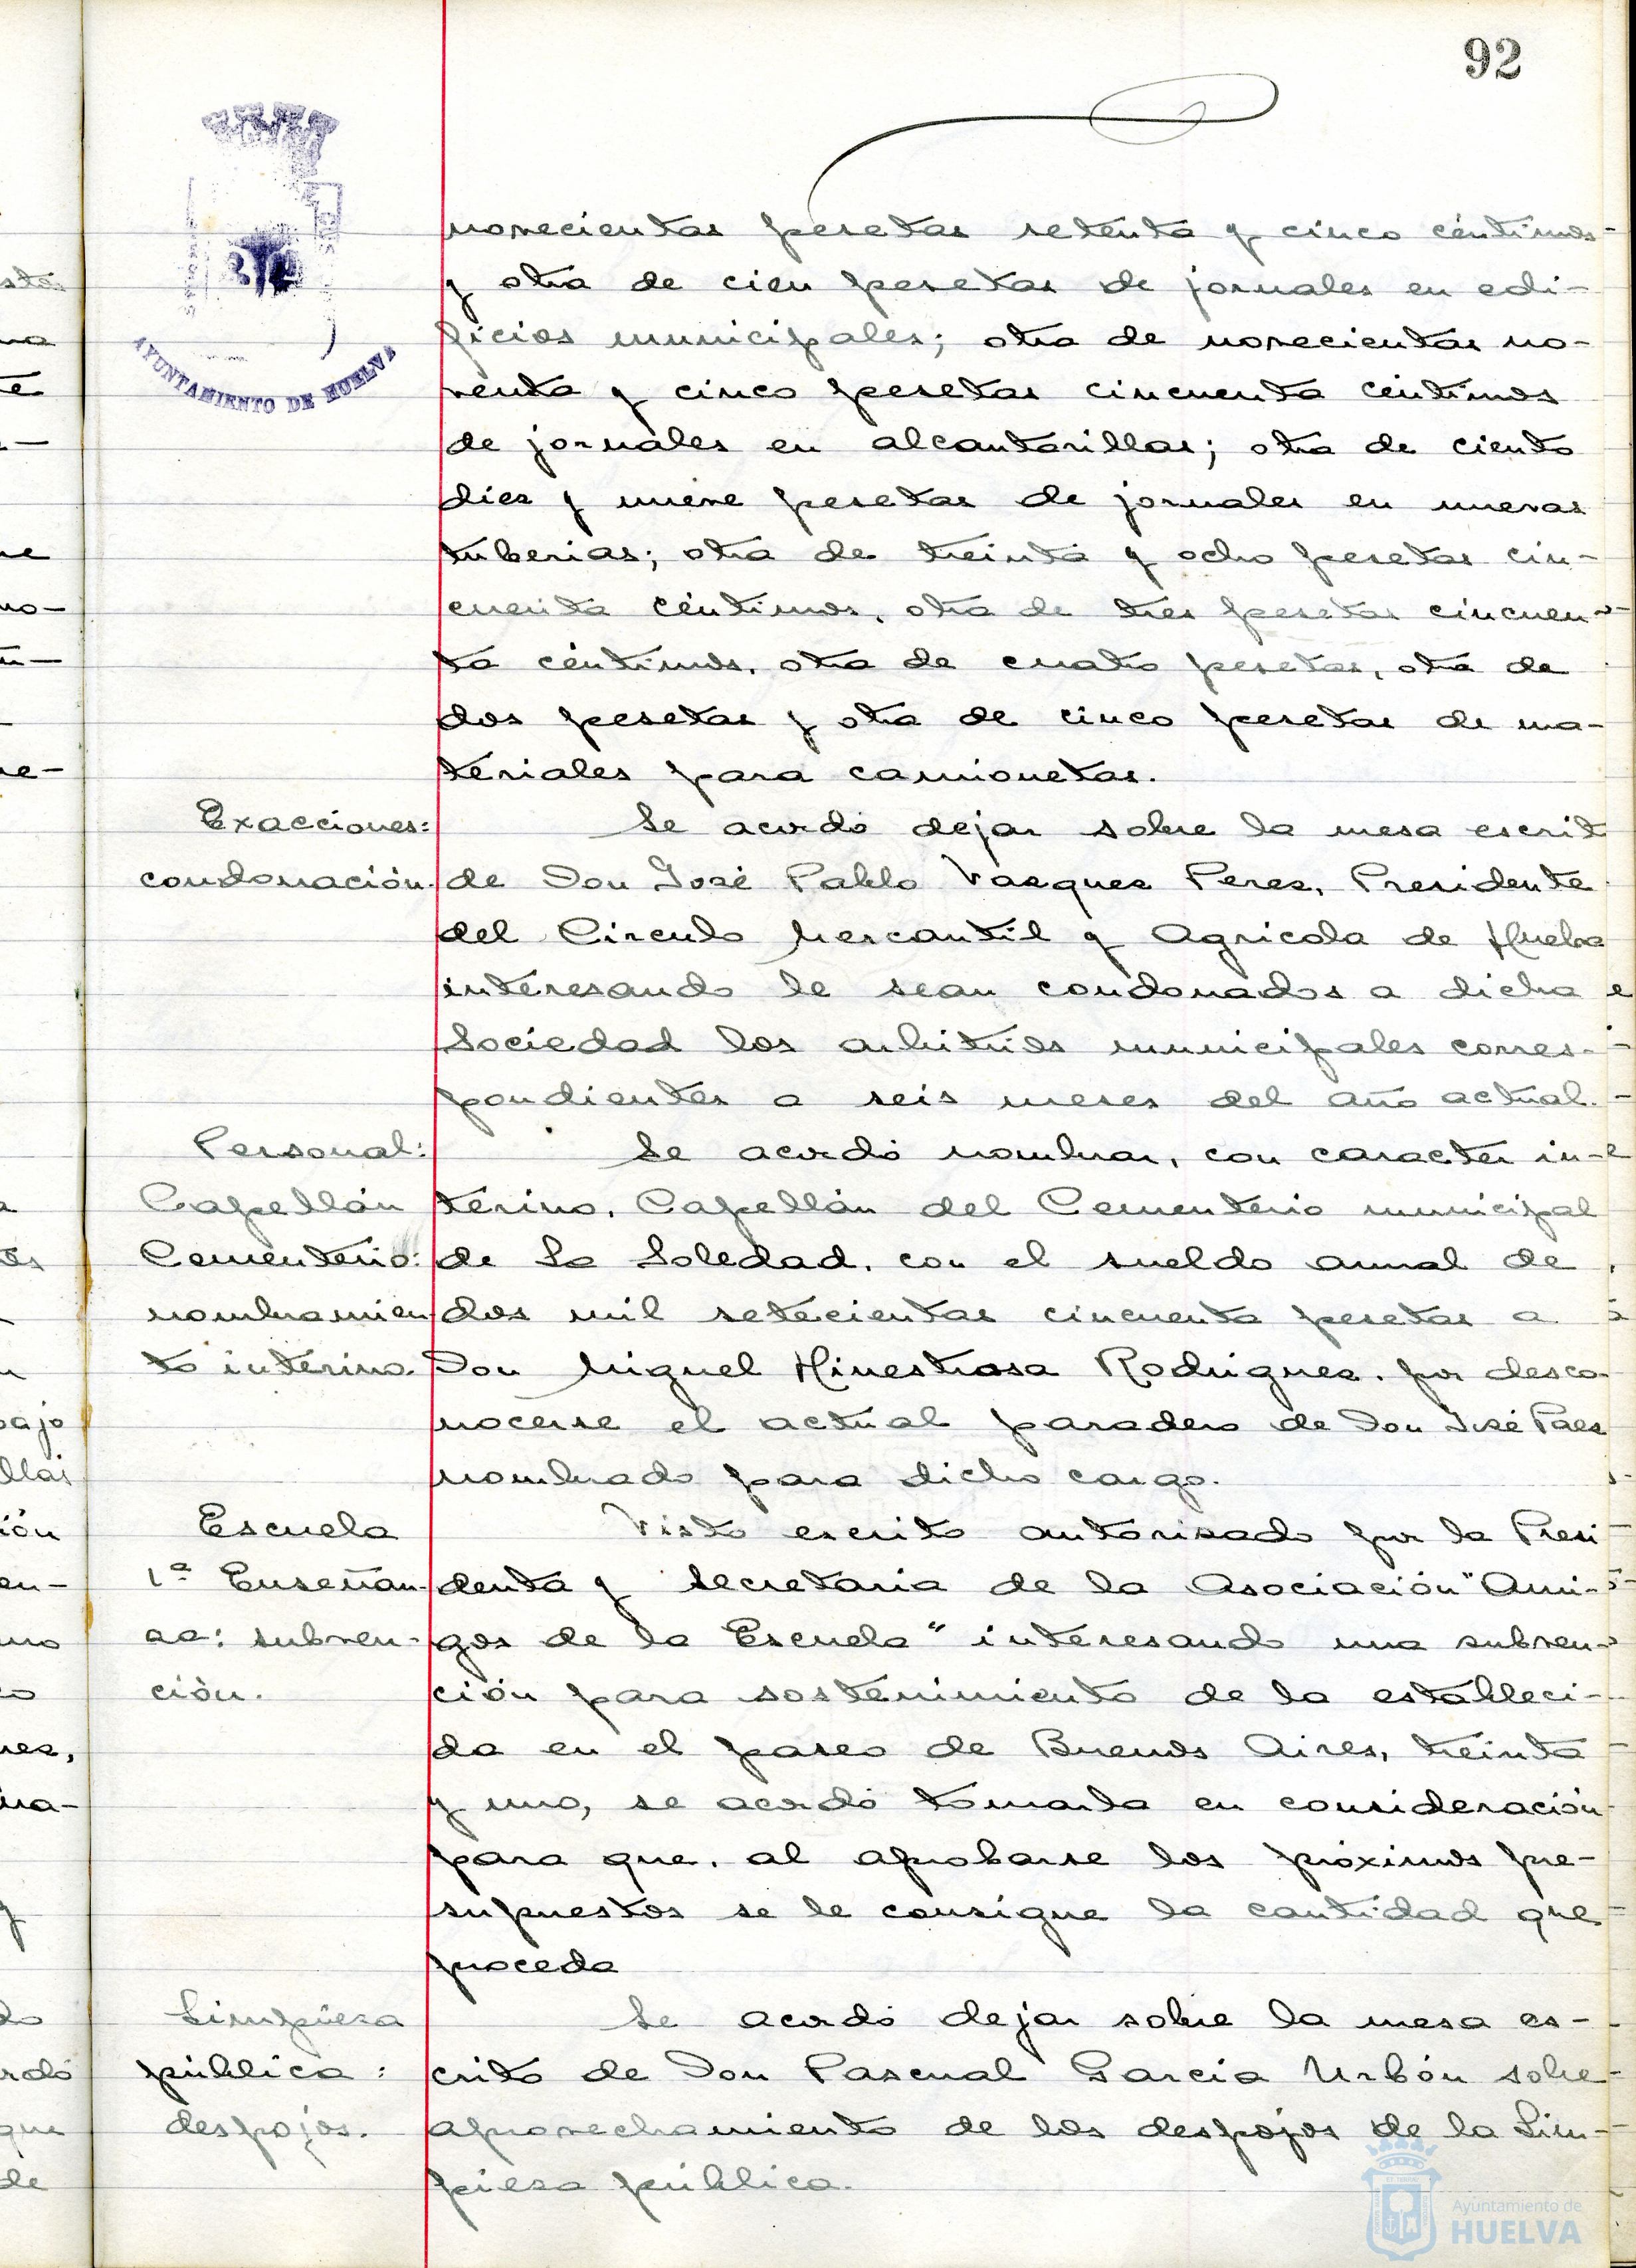 92
AYUNTAMIENTO DE HUELVA
novecientas pesetas setenta y cinco céntimos
y otra de cien pesetas de jornales en edi-
ficios municipales; otra de novecientas no-
venta y cinco pesetas cincuenta céntimos
de jornales en alcantarillas; otra de ciento
diez y nueve pesetas de jornales en nuevas
tuberias; otra de treinta y ocho pesetas cin-
cuenta céntimos, otra de tres pesetas cincuen-
ta céntimos, otra de cuatro pesetas, otra de
dos pesetas y otra de cinco pesetas de ma-
teriales para camionetas.
Exacciones:
condonación.
Se acordó dejar sobre la mesa escrit
de Don José Pablo Vazquez Perez, Presidente
del Circulo Mercantil y Agricola de Huelva
interesando le sean condonados a dicha
Sociedad los arbitrios municipales corres-
pondientes a seis meses del año actual.
Personal:
Capellán
Cementerio:
nombramien
to interino.
Se acordó nombrar, con caracter in-
terino, Capellán del Cementerio municipal
de La Soledad, con el sueldo anual de
dos mil setecientas cincuenta pesetas a
Don Miguel Hinestrosa Rodriguez, por desco-
nocerse el actual paradero de Don José Paez
nombrado para dicho cargo.
Escuela
1ª Enseñan-
za: subven-
ción.
Visto escrito autorizado por la Presi
denta y Secretaria de la Asociación "Ami-
gos de la Escuela" interesando una subven-
ción para sostenimiento de la estableci-
da en el paseo de Buenos Aires, treinta
y uno, se acordó tomarla en consideración
para que, al aprobarse los próximos pre-
supuestos se le consigne la cantidad que
proceda
Limpieza
pública:
despojos.
Se acordó dejar sobre la mesa es-
crito de Don Pascual Garcia Urbón sobre
aprovechamiento de los despojos de la Lim-
pieza pública.
Ayuntamiento de
HUELVA